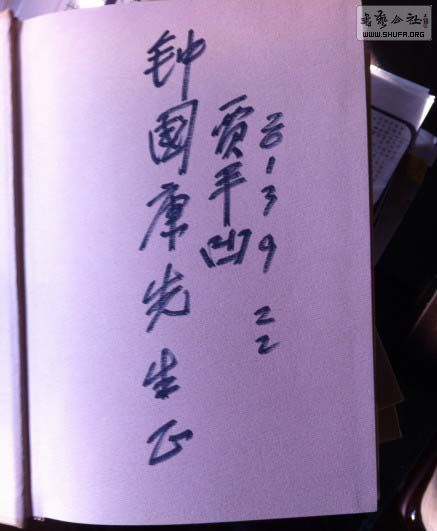 钟國康先生正
贾平凹
2013 9 22
書藝公社
WWW.SHUFA.ORG